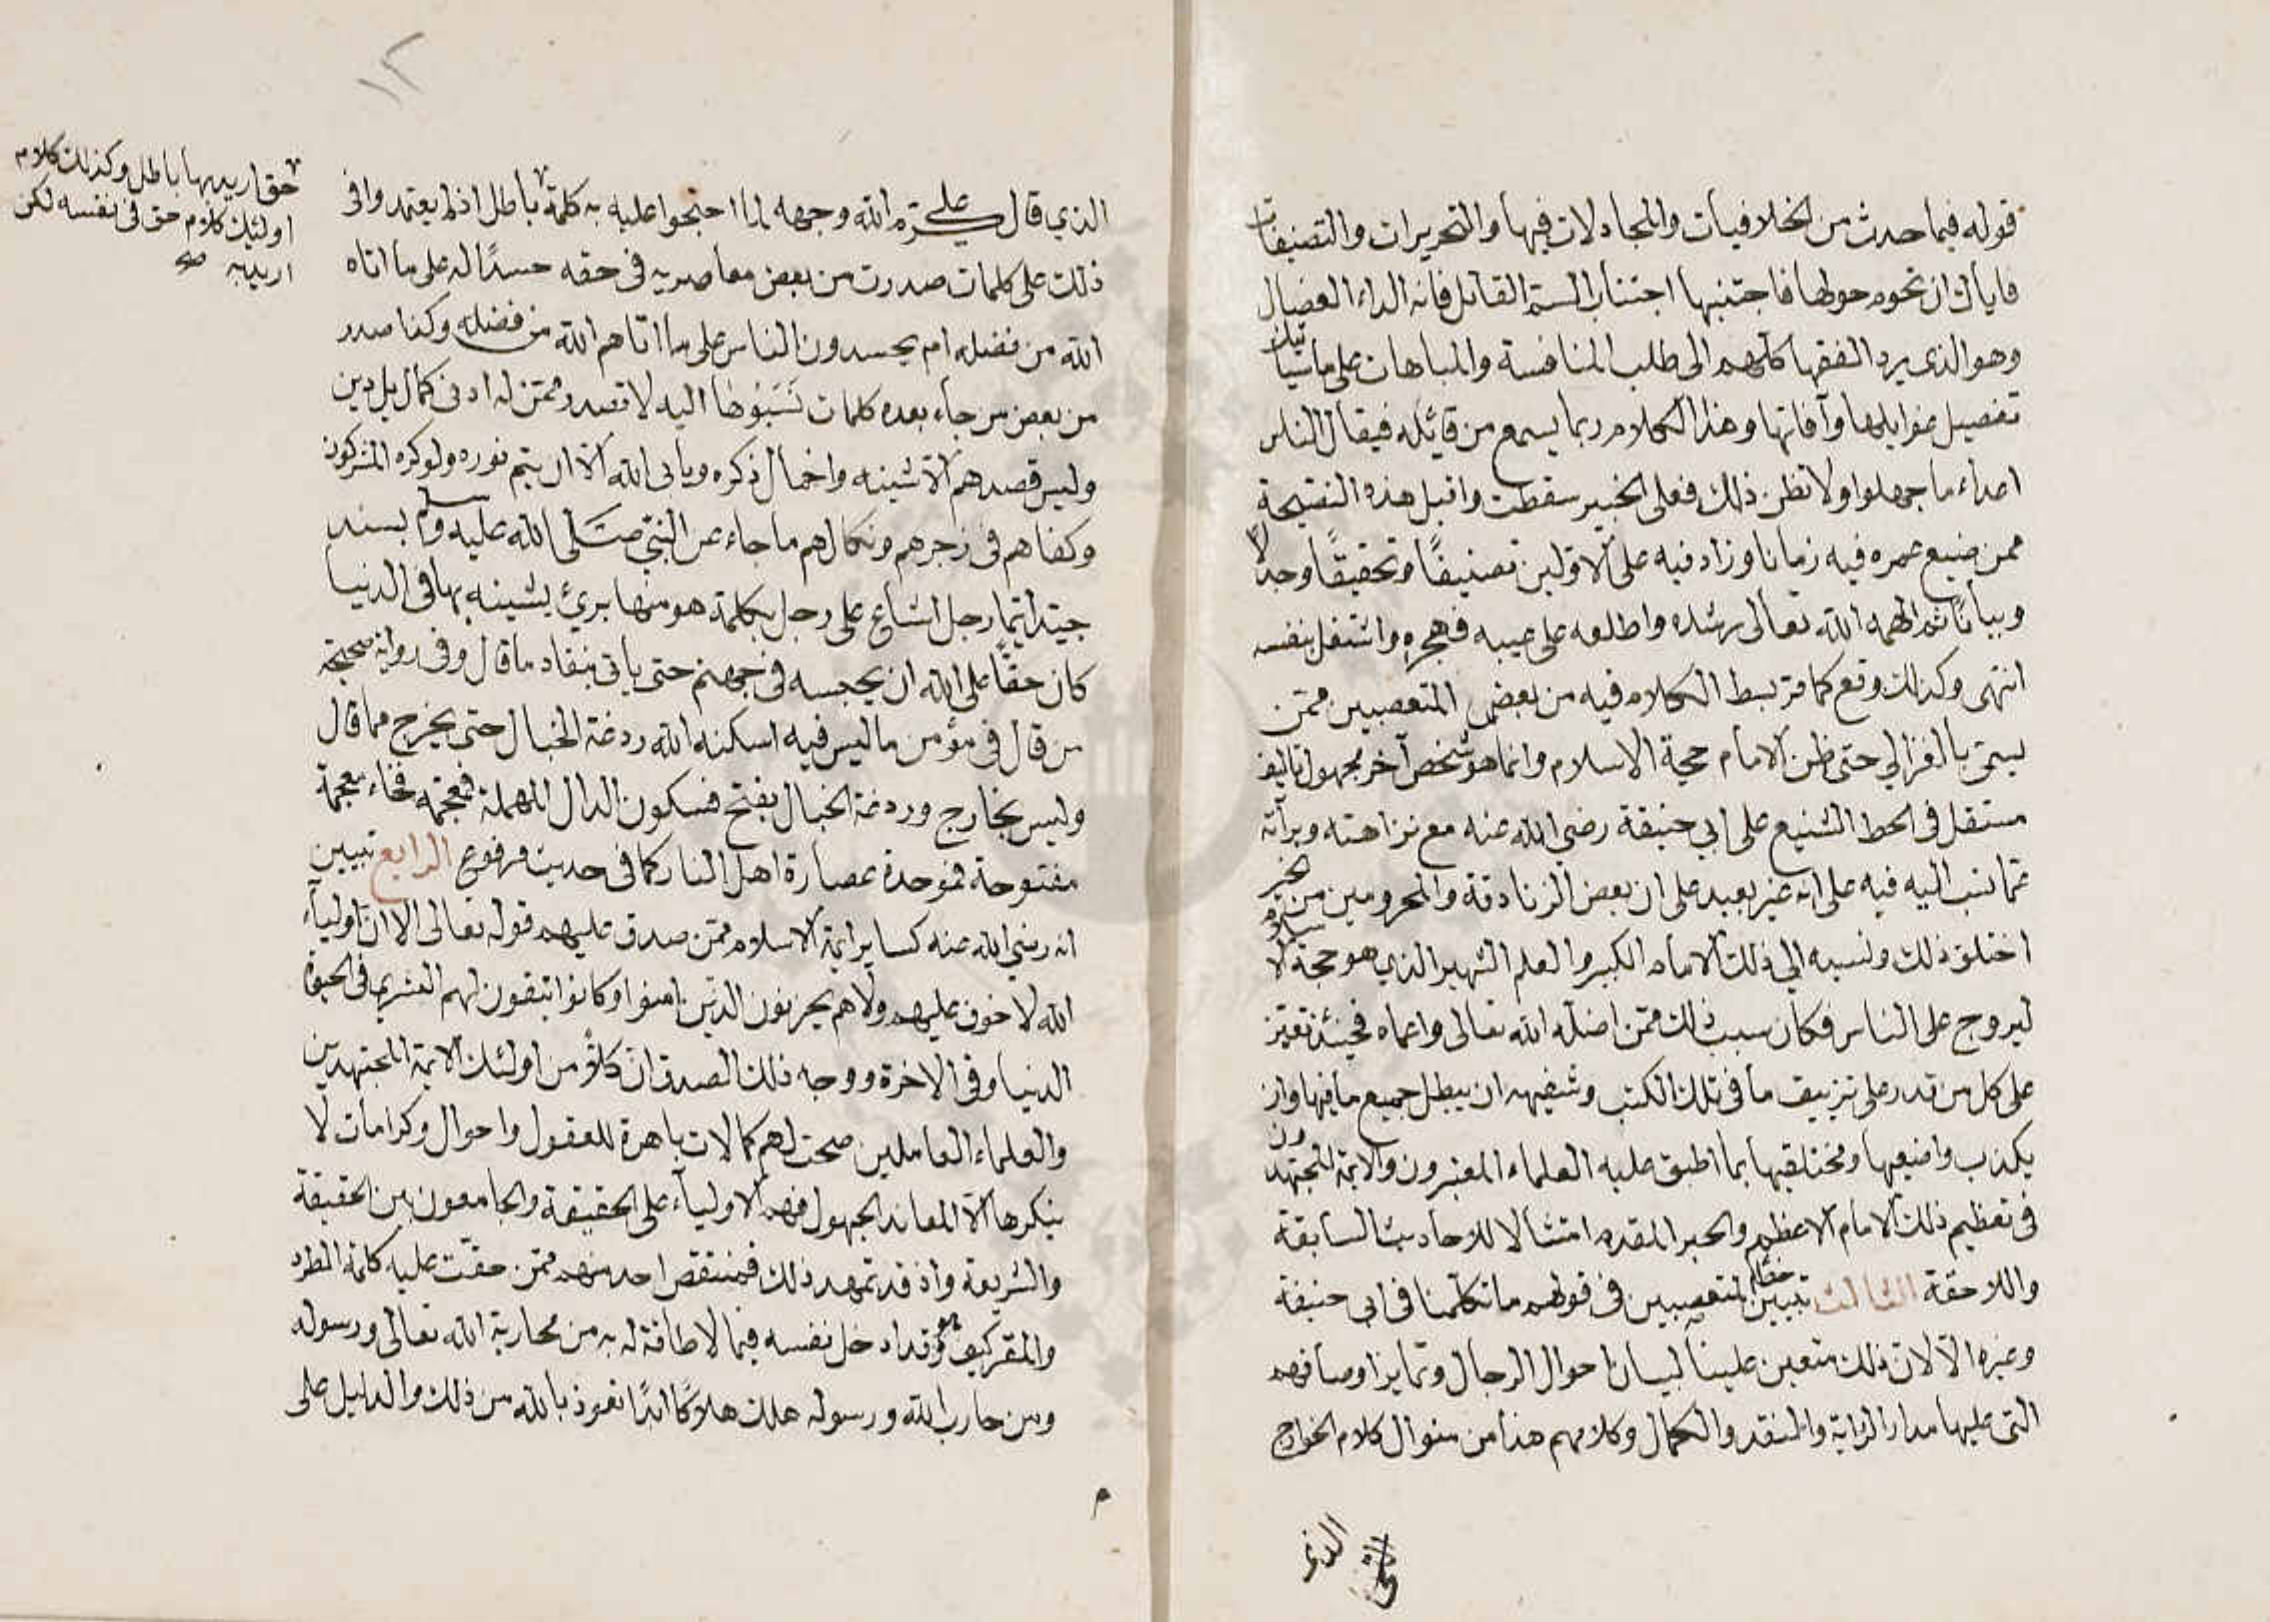 قوله فيما حدث من الخلافيات والمجادلات فيها والتحريرات والتصنيفات
فاياك ان تحوم حولها فاجتنبها اجتناب السم القاتل فانه الداء العضال
وهو الذى يرد الفقها كلهم الى طلب المنافسة والمباهات على ما سياتيك
تفصيل غوايلها وآفاتها وهذا الكلام ربما يسمع من قائله فيقال الناس
اعداء ما جهلوا ولا تظن ذلك فعلى الخبير سقطت واقبل هذه النصيحة
ممن ضيع عمره فيه زمانا وزاد فيه على الاولين تصنيفًا وتحقيقًا وجدلا
وبيانًا ثم الهمه الله تعالى رشده واطلعه على عيبه فهجره واشتغل بنفسه
انتهى وكذلك وقع كما مر بسط الكلام فيه من بعض المتعصبين ممن
يسمى بالغزالي حتى ظن الامام حجة الاسلام وانما هو شخص آخر مجهول تاليفه
مستقل فى الحط الشنيع على ابي حنيفة رضي الله عنه مع نزاهته وبرآته
عما نسب اليه فيه على انه غير بعيد على ان بعض الزنادقة والمحرومين من الخير
اختلق ذلك ونسبه الي ذلك الامام الكبير والعلم الشهير الذي هو حجة الاسلام
ليروج على الناس فكان سبب ذلك ممن اضله الله تعالى واعماه فحينئذ تعين
على كل من قدر على تزييف ما فى تلك الكتب وشفيهه ان يبطل جميع ما فيها وان
يكذب واضعيها ومختلقيها بما اطبق عليه العلماء المعتبرون والايمة المجتهدون
فى تعظيم ذلك الامام الاعظم والحبر المقدم امتثالا للاحاديث السابقة
واللاحقة الثالث تبيين خطأ المتعصبين فى قولهم ما تكلمنا فى ابى حنيفة
وغيره الا لان ذلك متعين علينا لبيان احوال الرجال وتمايز اوصافهم
التى عليها مدار الراية والنقد والكمال وكلامهم هذا من منوال كلام الخوارج
الذى
١٢
الذي قال على كرم الله وجهه لما احتجوا عليه به كلمة باطل اذ لم يعتمدوا فى
ذلك على كلمات صدرت من بعض معاصريه فى حقه حسدًا له على ما اتاه
الله من فضله ام يحسدون الناس على ما اتاهم الله من فضله وكذا صدر
من بعض من جاء بعده كلمات نسبوها اليه لا تصدر ممن له ادنى كمال بل دين
وليس قصدهم الا شينه واخمال ذكره ويابى الله الا ان يتم نوره ولو كره المشركون
وكفاهم فى زجرهم ونكالهم ما جاء عن النبي صلى الله عليه وسلم بسند
جيد ايما رجل اشاع على رجل بكلمة هو منها بريئ يشينه بها فى الدنيا
كان حقًا على الله ان يحبسه فى جهنم حتى ياتى بنفاد ما قال وفى رواية صحيحة
من قال فى مؤمن ما ليس فيه اسكنه الله ردغة الخبال حتى يخرج مما قال
وليس بخارج وردغة الخبال بفتح فسكون الدال المهملة فمعجمه فخاء معجمة
مفتوحة فموحدة عصارة اهل النار كما فى حديث مرفوع الرابع تبيين
انه رضي الله عنه كساير ايمة الاسلام ممن صدق عليهم قوله تعالى الا ان اولياء
الله لا خوف عليهم ولا هم يحزنون الذين امنوا وكانوا يتقون لهم البشرى فى الحيوة
الدنيا وفى الاخرة ووجه ذلك الصدق ان كلاً من اولئك الايمة المجتهدين
والعلماء العاملين صحت لهم كمالات باهرة للعقول واحوال وكرامات لا
ينكرها الا المعاند الجهول فهم الاولياء على الحقيقة والجامعون بين الحقيقة
والشريعة واذ قد تمهد ذلك فمنتقص احد منهم ممن حقت عليه كلمة الطرد
والمقت كيف وهو قد ادخل نفسه فيما لا طاقة له به من محاربة الله تعالى ورسوله
ومن حارب الله ورسوله هلك هلاكًا ابدًا نعوذ بالله من ذلك والدليل على
حق اريد بها باطل وكذلك كلام
اولئك كلام حق فى نفسه لكن
اريد به صح